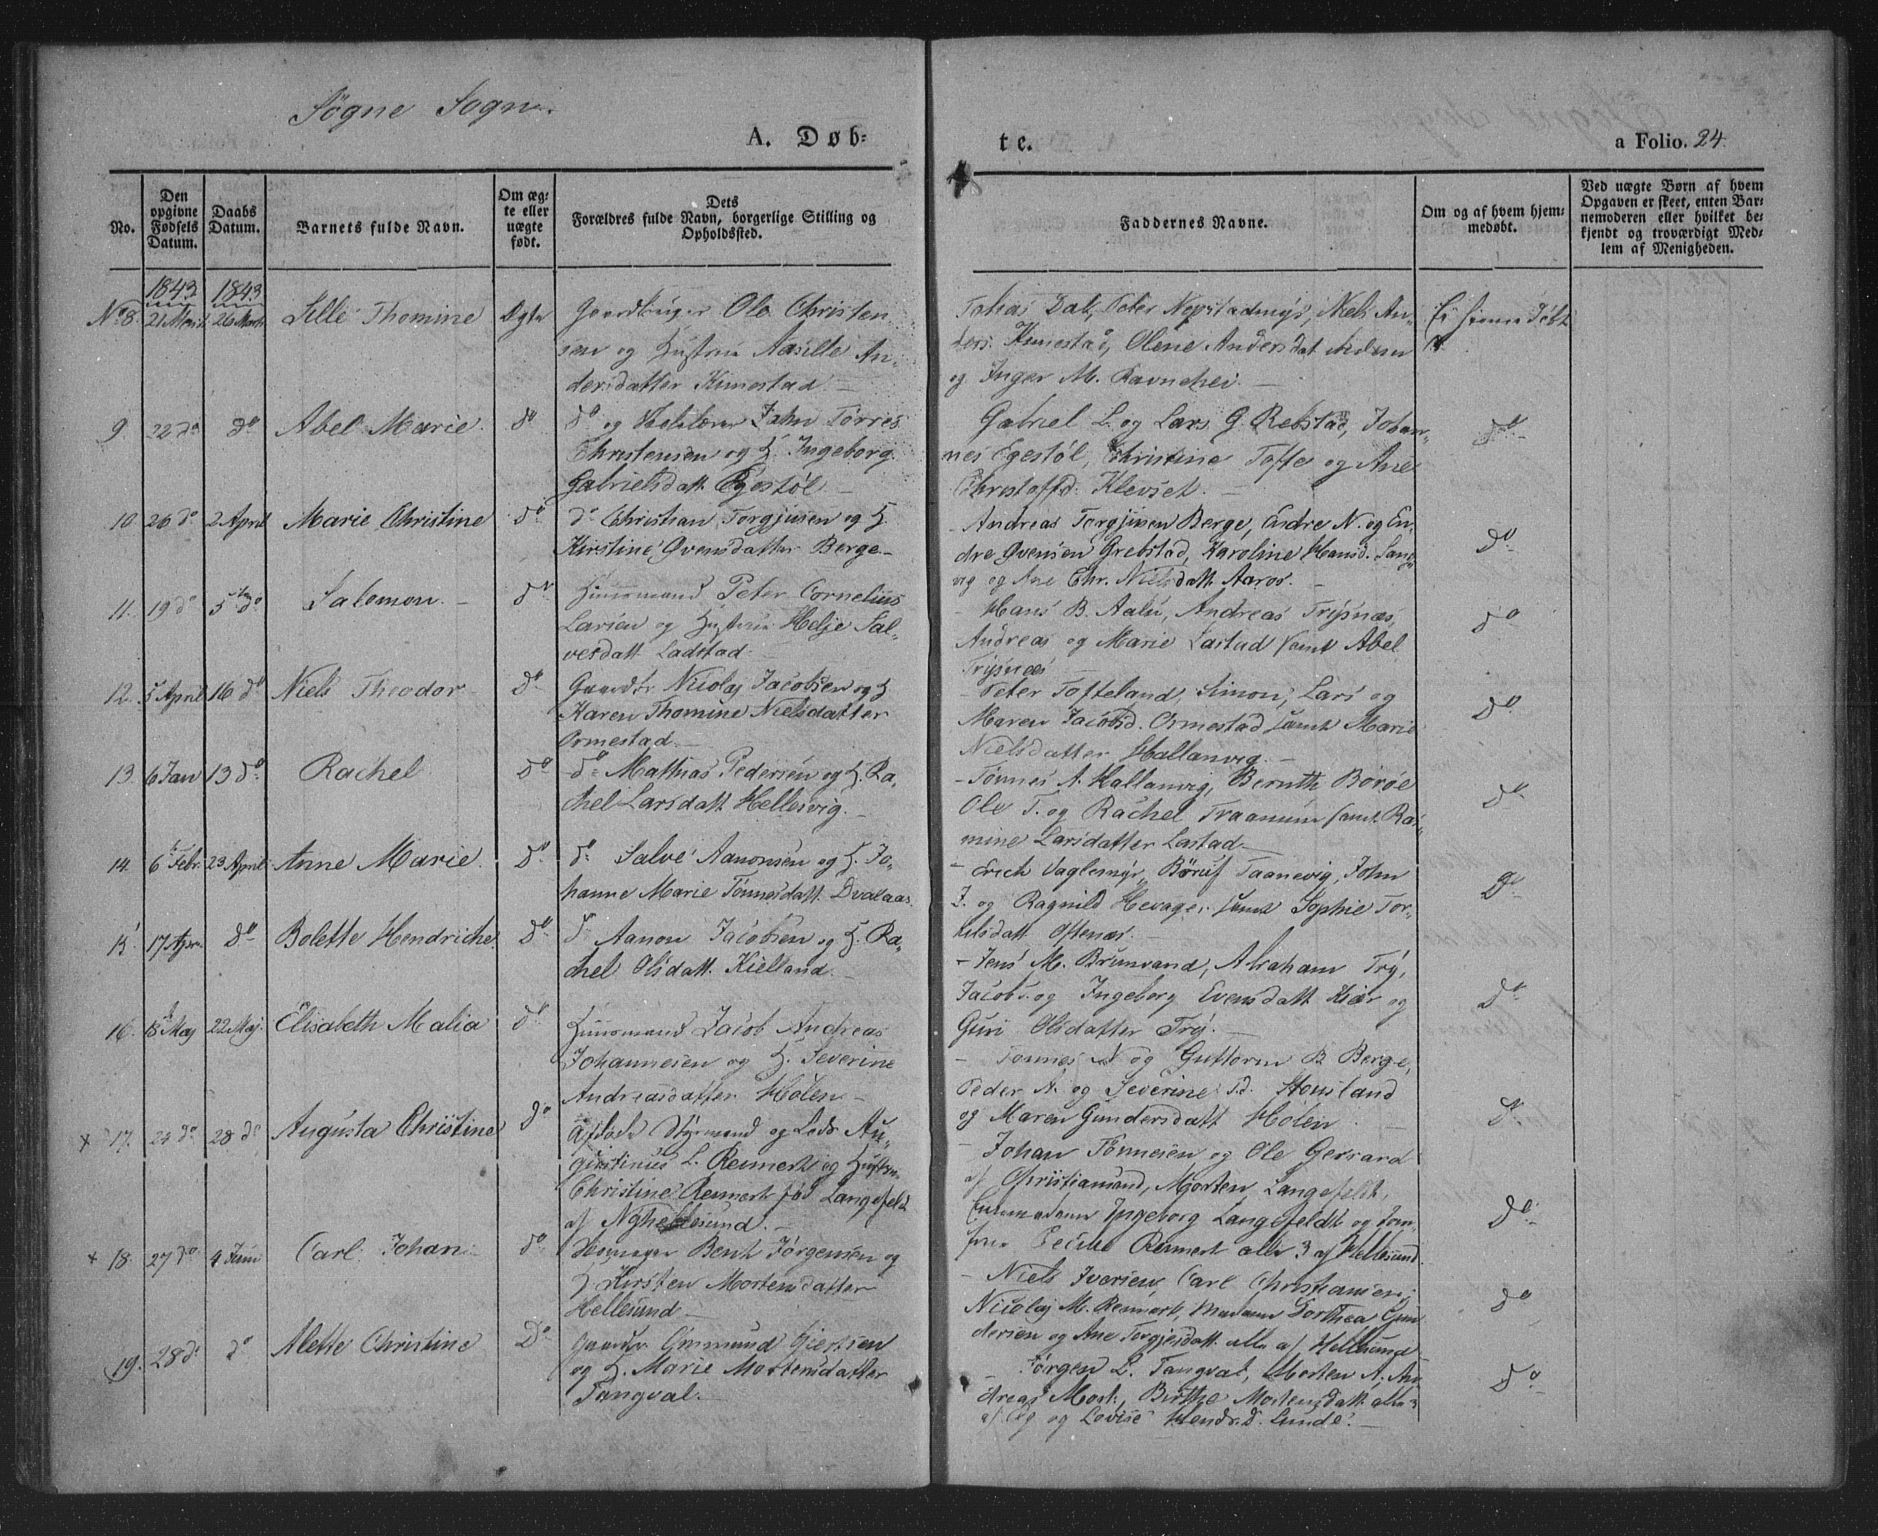 Søgne Sogn.
A. Døb-
te.
a Folio. 24
No.
Den opgivne Fødsels Datum.
Daabs Datum.
Barnets fulde Navn.
Om ægte eller uægte født.
Dets Forældres fulde Navn, borgerlige Stilling og Opholdssted.
Faddernes Navne.
Om og af hvem hjemmedøbt.
Ved uægte Børn af hvem Opgaven er skeet, enten Barnemoderen eller hvilket bekjendt og troværdigt Medlem af Menigheden.
1843 1843
No 8. 21 Marts 26 Marts Sille Thomine Ægte Gaardbruger Ole Christen-
sen og Hustrue Aasille An-
dersdatter Kimestad. —
Peter Nepstadmyr, Niels An-
ders. Kimestad, Olene Andersdat
og Inger M. Ravnehei. —
Ei hjemmedøbt
9. 22 do do Abel Marie do do og John Tørres
Christensen og H. Ingeborg
Gabrielsdatt. Egestøl —
Gabriel L. og Lars G. Rebstad, Johan-
nes Egestøl, Christine Tofte og Ane
Christoffd. Klevset. —
do
10. 26 do 2 April Marie Christine do do Christian Torgjusen og H.
Kirstine Øvensdatter Berge —
Andreas Torgjusen Berge, Endre N. og En-
dre Øvensen Grebstad, Karoline Hansd. Sang-
vig og Ane Chr. Nielsdatt. Aaros. —
do
11. 19 do 5 do Salomon. — do Huusmand Peter Cornelius
Larsen og Hustrue Helje Sal-
vesdatt Ladstad. —
— Hans B. Aalu, Andreas Trysnæs,
Andreas og Marie Lastad samt Abel
Trysnæs —
do
12. 5 April 16 do Niels Theodor do Gaardbr. Nicolaj Jacobsen og H
Karen Thomine Nielsdatter
Ormestad. —
— Peter Tofteland, Simon, Lars og
Maren Jacobsd. Ormestad samt Marie
Nielsdatter Hallanvig. —
do
13. 6 Jan 13 do Rachel do do Mathias Pedersen og H. Ra-
chel Larsdatt Hellesvig. —
— Tønnes A. Hallanvig, Bernth Borøe
Ole T. og Rachel Traanum samt Ra-
mine Larsdatter Lastad —
do
14. 6 Febr. 23 April Anne Marie. do do Salve Aanonsen og H. Jo-
hanne Marie Tønnesdatt. Dvalaas.
— Erich Vaglemyr, Taanevig, John
J. og Ragnild Hevage, samt Sophie Tor-
kilsdatt Oftenæs. —
do
15. 17 Apr. do Bolette Hendriche do do Aanon Jacobsen og H. Ra-
chel Olsdatt. Kielland. —
— Jens M. Brunvand, Abraham Try,
Jacob og Ingeborg Evensdatt Kiær og
Guri Olsdatter Try. —
do
16. 15 Maj 22 Maj. Elisabeth Malia do Huusmand Jacob Andreas
Johannesen og H. Severine
Andreasdatter Holen —
— Tønnes N og Guttorm B Berge,
Peder A. og Severine Stousland
og Maren Gundersdatt Holen. —
do
× 17. 24 do 28 do Augusta Christine do Afdøde Styrmand og Lods Au-
gustinus L. Rennerts og Hustru
Christine Rennert fød Langefeld
af Ny Hellesund. —
— Johan Tønnesen og Ole Gerrard
af Christiansand, Morten Langefeldt,
Ingeborg Langefeldt og Jom-
frue Rennert alle 3 af Hellesund.
do
× 18. 27 do 4 Juni Carl Johan do Bent Jørgensen og
H. Kirsten Mortensdatter
Hellesund —
— Niels Iversen, Carl Christiansen,
Nicolaj M. Rennert, Madame Dorthea Gun-
dersen og Ane Torgjesdatt. alle af Hellesund
do
19. 28 do do Alette Christine Do Gaardbr Gunmund Giertsen
og H. Marie Mortensdatter
Tangval. —
— Jørgen L. Tangval, Morten A. An-
dreas Mort., Birthe Mortensdatt. alle
af Eg og Lovise Hendr. D. Lunde. —
do